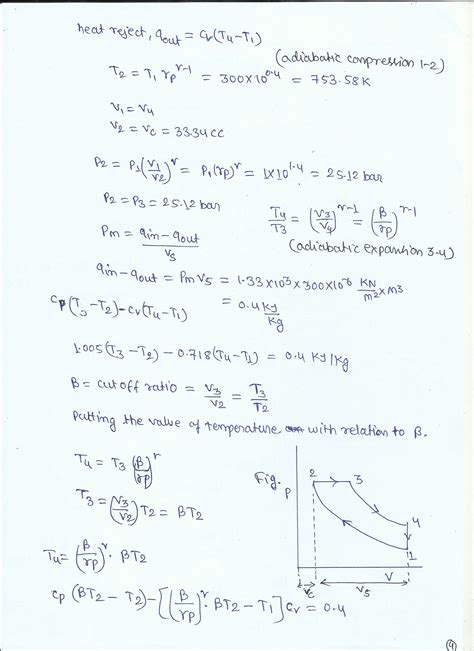 heat reject, qout = cv(T4-T1)
(adiabatic compression 1-2)
T2 = T1 rp^r-1 = 300×10^0.4 = 753.58K
V1 = V4
V2 = Vc = 33.34 cc
P2 = P1(V1/V2)^r = P1(rp)^r = 1×10^1.4 = 25.12 bar
P2 = P3 = 25.12 bar
T4/T3 = (V3/V4)^r-1 = (β/rp)^r-1
Pm = qin - qout/Vs
(adiabatic expansion 3-4)
qin - qout = Pm Vs = 1.33×10^3×300×10^-6 KN/m2 × m3
= 0.4 KJ/Kg
cp(T3-T2)-cv(T4-T1)
1.005(T3-T2) - 0.718(T4-T1) = 0.4 KJ/Kg
β = cutoff ratio = V3/V2 = T3/T2
putting the value of temperature with relation to β.
T4 = T3(β/rp)^r
Fig.
P
2
3
4
1
Vc
Vs
V
T3 = (V3/V2)T2 = βT2
T4 = (β/rp)^r · βT2
cp(βT2 - T2) - [(β/rp)^r · βT2 - T1]cv = 0.4
(9)